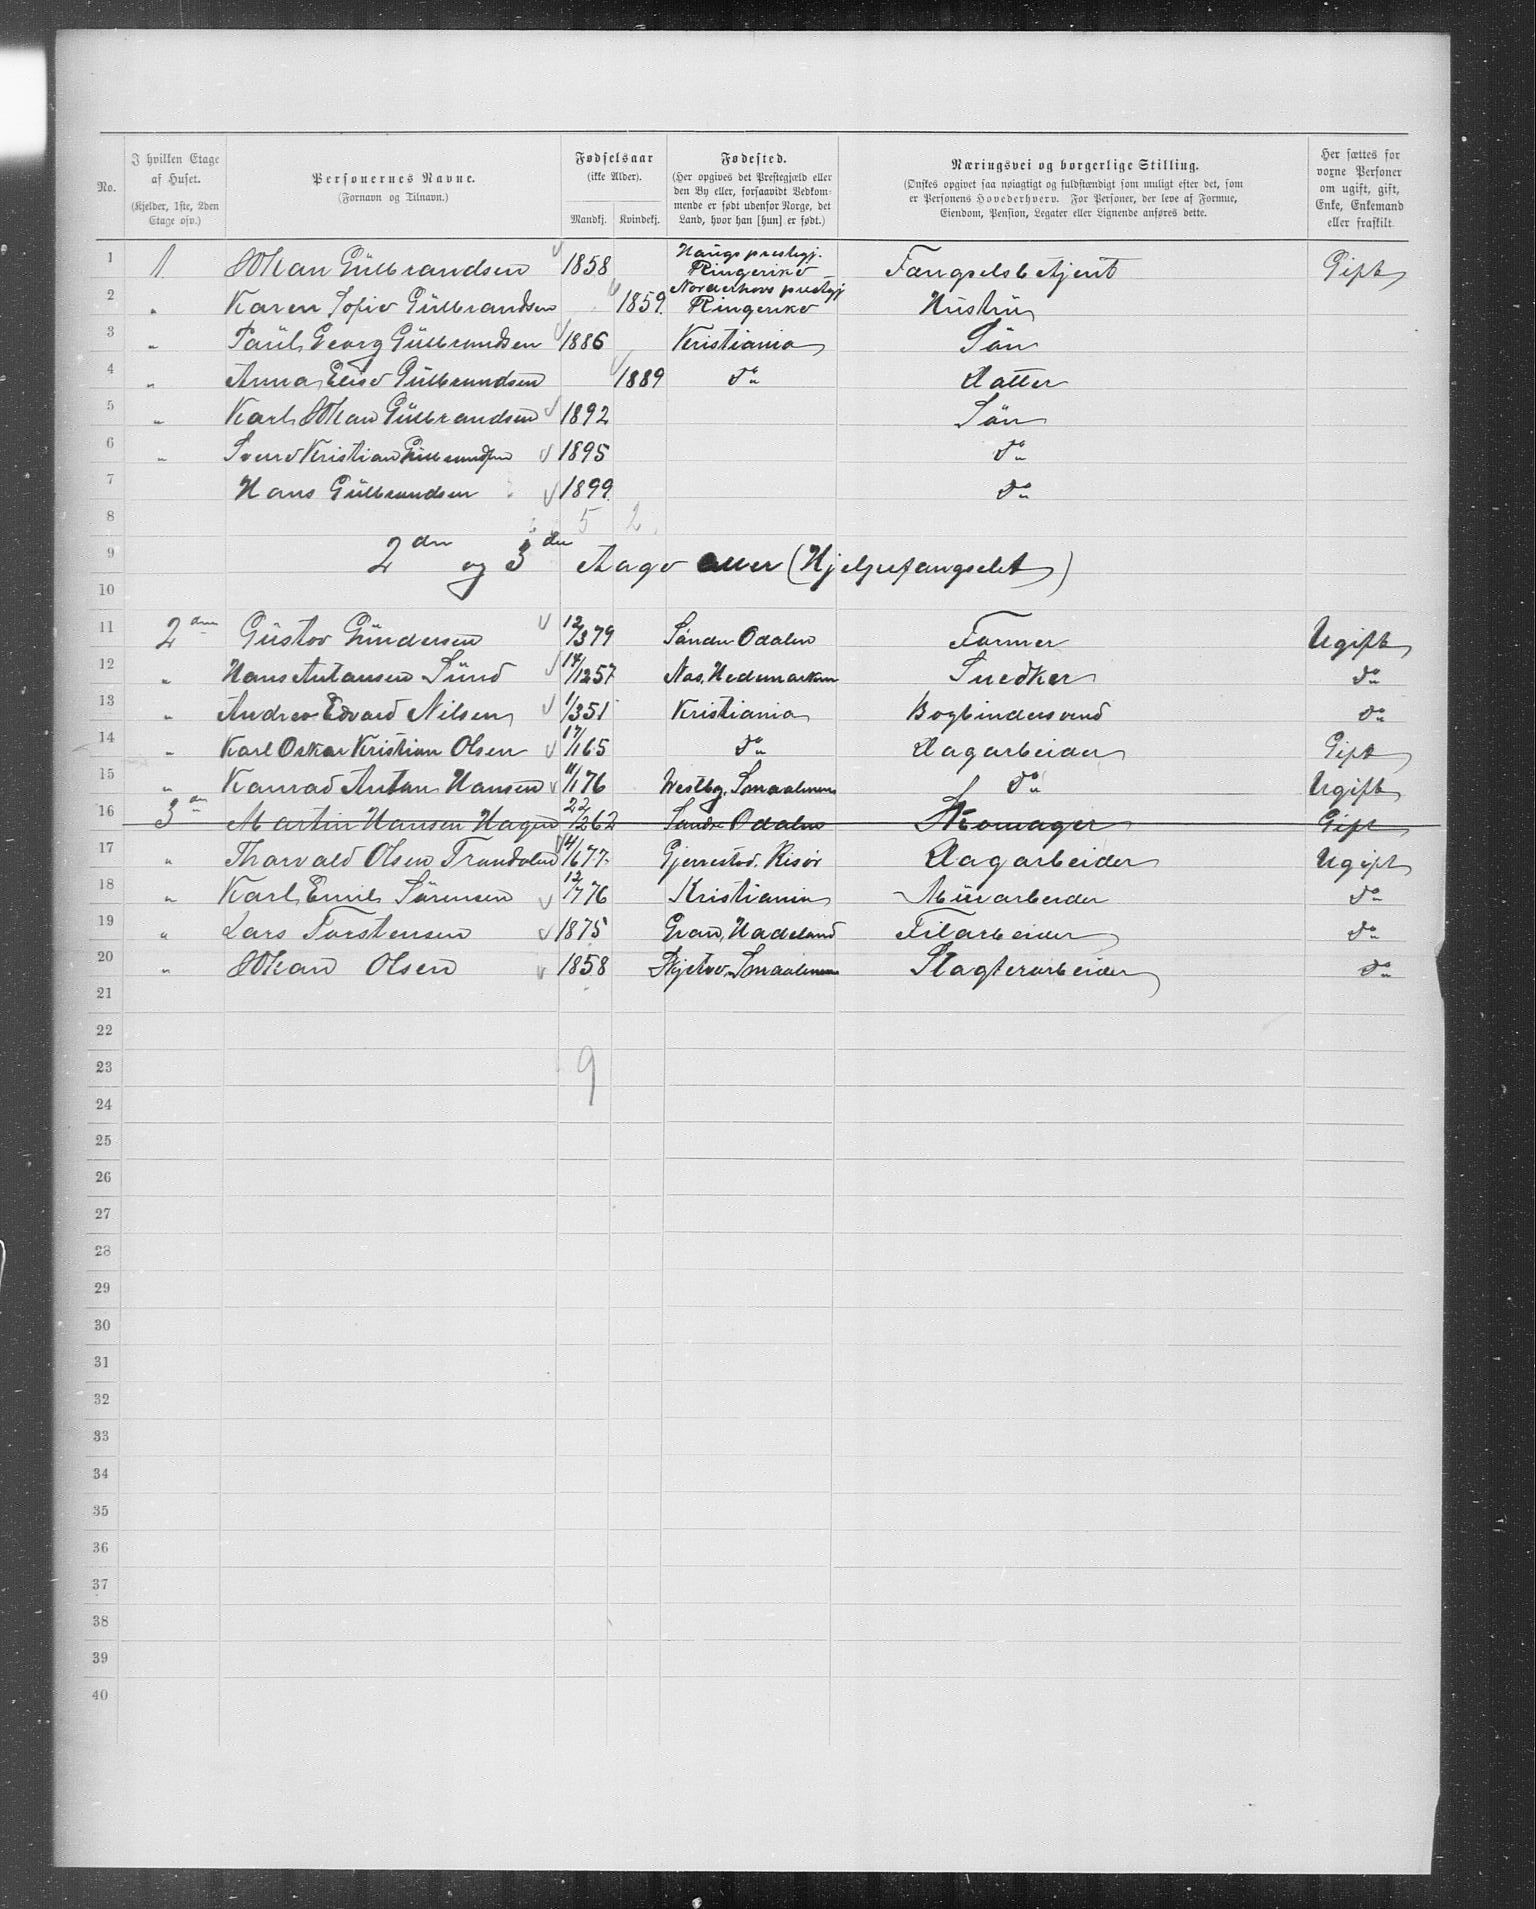 No.
I hvilken Etage af Huset.
(Kjelder, 1ste, 2den Etage osv.)
Personernes Navne.
(Fornavn og Tilnavn.)
Fødselsaar
(ikke Alder).
Mandkj. Kvindekj.
Fødested.
(Her opgives det Prestegjæld eller den By eller, forsaavidt Vedkommende er født udenfor Norge, det Land, hvor han [hun] er født.)
Næringsvei og borgerlige Stilling.
(Ønskes opgivet saa nøiagtigt og fuldstændigt som muligt efter det, som er Personens Hovederhverv. For Personer, der leve af Formue, Eiendom, Pension, Legater eller Lignende anføres dette.
Her sættes for voxne Personer om ugift, gift, Enke, Enkemand eller fraskilt.
1 1 Johan Gulbrandsen 1858 Haugs prestegj. Ringerike Fængselsbetjent Gift
2 " Karen Sofie Gulbrandsen 1859. Norderhovs prestegj Ringerike Hustru
3 " Paul Georg Gulbrandsen 1886 Kristiania Søn
4 " Anna Elise Gulbrandsen 1889 do Datter
5 " Karl Johan Gulbrandsen 1892 Søn
6 " Kristian Gulbrandsen 1895 do
7 Hans Gulbrandsen 1899. do
8 5 2
9 2den og 3die (Hjelpefængselet)
10
11 2den Gustav Gundersen 12/3 79 Søndre Odalen Farmer Ugift
12 " Hans Antonsen Sund 14/12 57 Nes, Hedemarken Snedker do
13 " Andreas Edvard Nilsen 1/3 51 Kristiania Bogbindersvend do
14 " Karl Oskar Kristian Olsen 17/1 65 do Dagarbeider Gift
15 " Konrad Anton Hansen 11/1 76 Westby, Smaalenene do Ugift
16 3die Martin Hansen Hagen 22/2 62 Søndre Odalen Skomager Gift
17 " Thorvald Olsen Trondalen 4/6 77. Gjerrestad, Risør Dagarbeider Ugift
18 " Karl Emil Sørensen 12/7 76 Kristiania Murarbeider do
19 " Lars Torstensen 1875 Gran, Hadeland Filarbeider do
20 " Johan Olsen 1858 Skjetve Smaalenene Slagterarbeider do
21
22
23 9
24
25
26
27
28
29
30
31
32
33
34
35
36
37
38
39
40